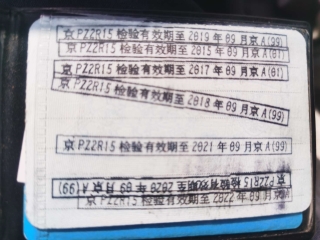 京 PZ2R15 检验有效期至 2019 年 09 月京 A(99)
京 PZ2R15 检验有效期至 2015 年 09 月京 A(01)
京 PZ2R15 检验有效期至 2017 年 09 月京 A(01)
京 PZ2R15 检验有效期至 2018 年 09 月京 A(99)
京 PZ2R15 检验有效期至 2021 年 09 月京 A(99)
京 PZ2R15 检验有效期至 2020 年 09 月京 A(99)
京 PZ2R15 检验有效期至 2022 年 09 月京